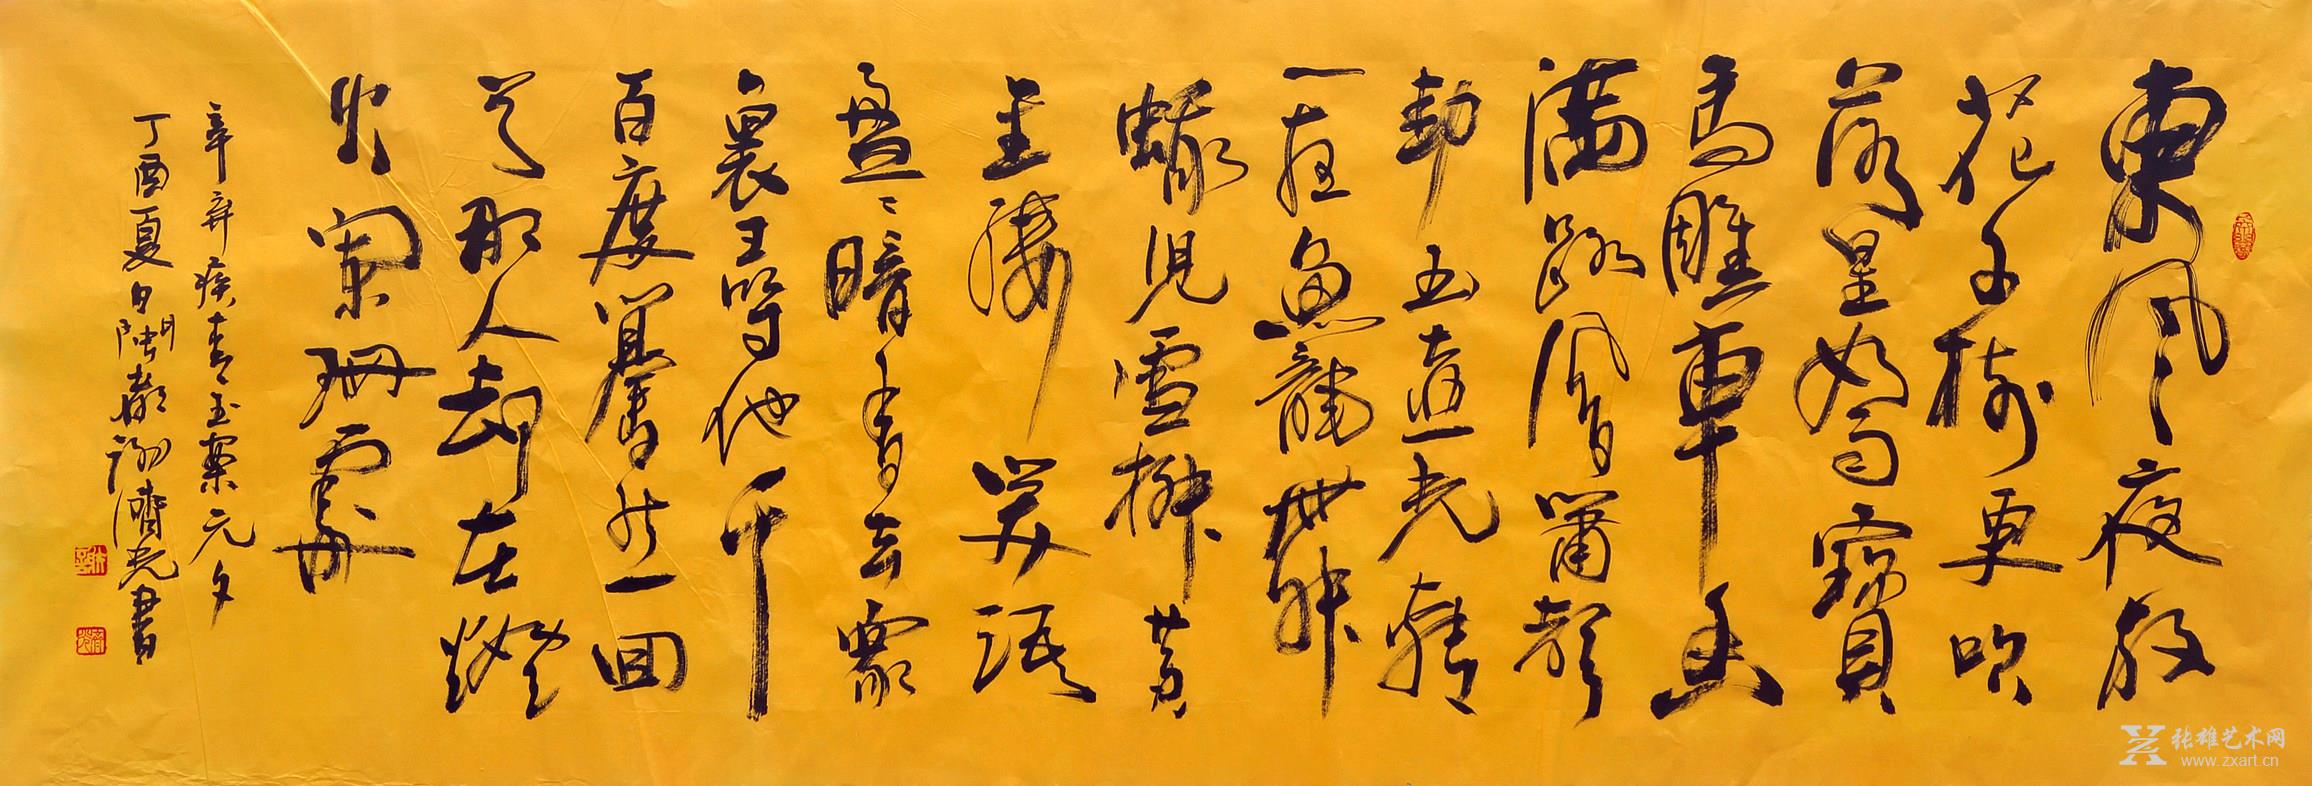 東風夜放
花千樹更吹
落星如雨寶
馬雕車香
滿路鳳簫聲
動玉壺光轉
一夜魚龍舞
蛾兒雪柳黃
金縷笑語
盈〻暗香去眾
裏尋他千
百度驀然回
首那人却在燈
火闌珊處
辛弃疾青玉案元夕
丁酉夏日閩都謝濟光書
张雄艺术网
www.zxart.cn